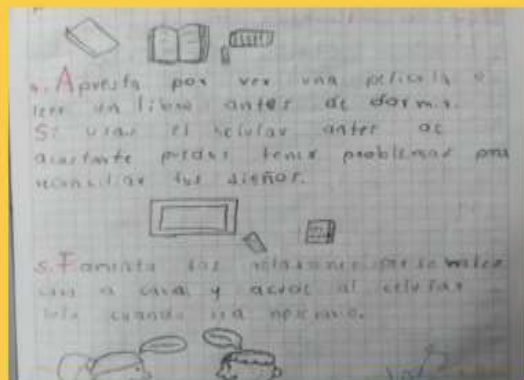 4. Apuesta por ver una película o
leer un libro antes de dormir.
Si usas el celular antes de
acostarte puedes tener problemas para
reconciliar tus sueños.
5. Fomenta las relaciones
cara a cara y acude al celular
solo cuando sea